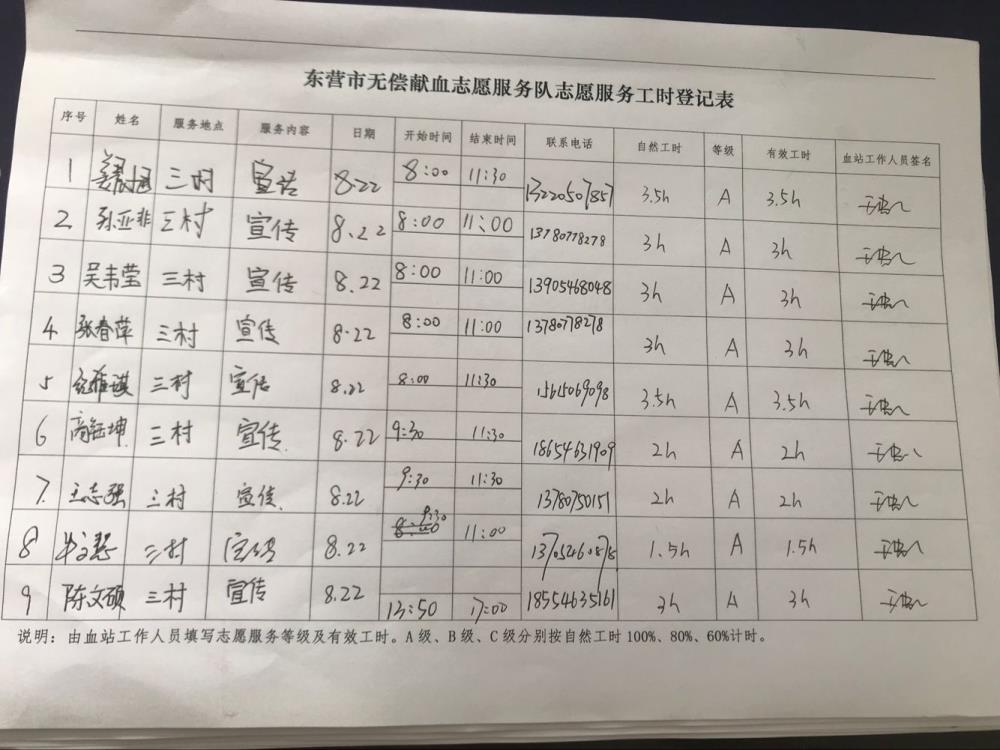 东营市无偿献血志愿服务队志愿服务工时登记表
序号 姓名 服务地点 服务内容 日期 开始时间 结束时间 联系电话 自然工时 等级 有效工时 血站工作人员签名
1 三村 宣传 8.22 8:00 11:30 13220507857 3.5h A 3.5h
2 孙亚非 三村 宣传 8.22 8:00 11:00 13780778278 3h A 3h
3 吴韦莹 三村 宣传 8.22 8:00 11:00 13905468048 3h A 3h
4 张春萍 三村 宣传 8.22 8:00 11:00 13780778278 3h A 3h
5 三村 宣传 8.22 8:00 11:30 15615069098 3.5h A 3.5h
6 三村 宣传 8.22 9:30 11:30 18654631909 2h A 2h
7 王志强 三村 宣传 8.22 9:30 11:30 13780750151 2h A 2h
8 三村 宣传 8.22 9:30 11:00 13705460878 1.5h A 1.5h
9 陈文硕 三村 宣传 8.22 13:50 17:00 18554635161 3h A 3h
说明：由血站工作人员填写志愿服务等级及有效工时。A 级、B 级、C 级分别按自然工时 100%、80%、60%计时。